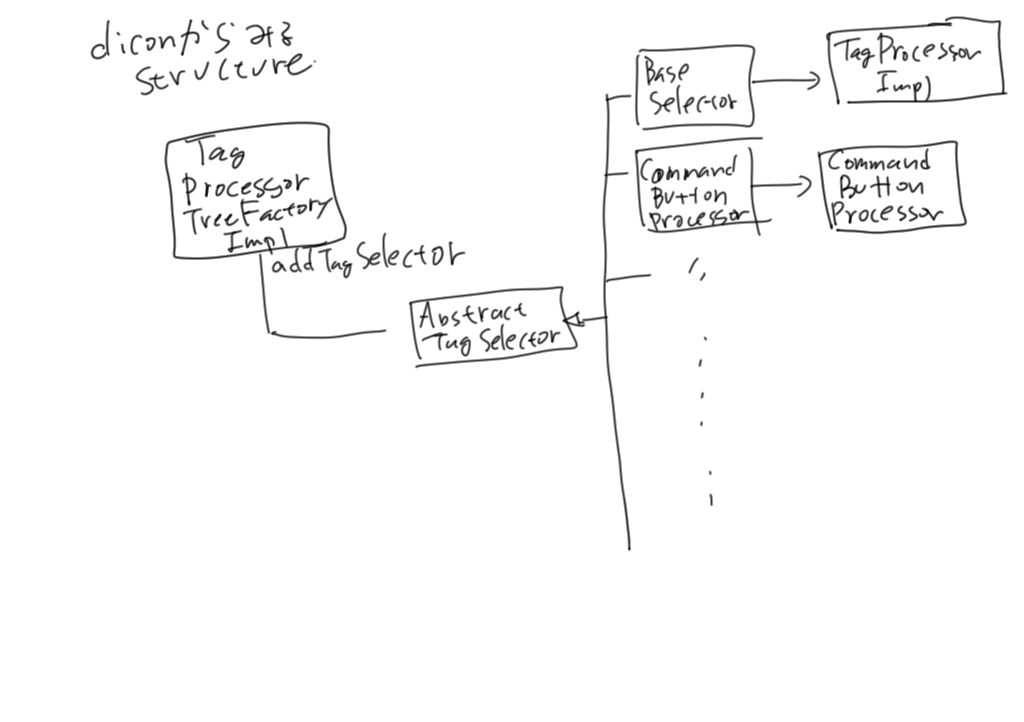 diconからみる
structure
Tag
Processor
TreeFactory
Impl
addTagSelector
Abstract
Tag Selector
Base
Selector
TagProcessor
Impl
Command
Button
Processor
Command
Button
Processor
〃